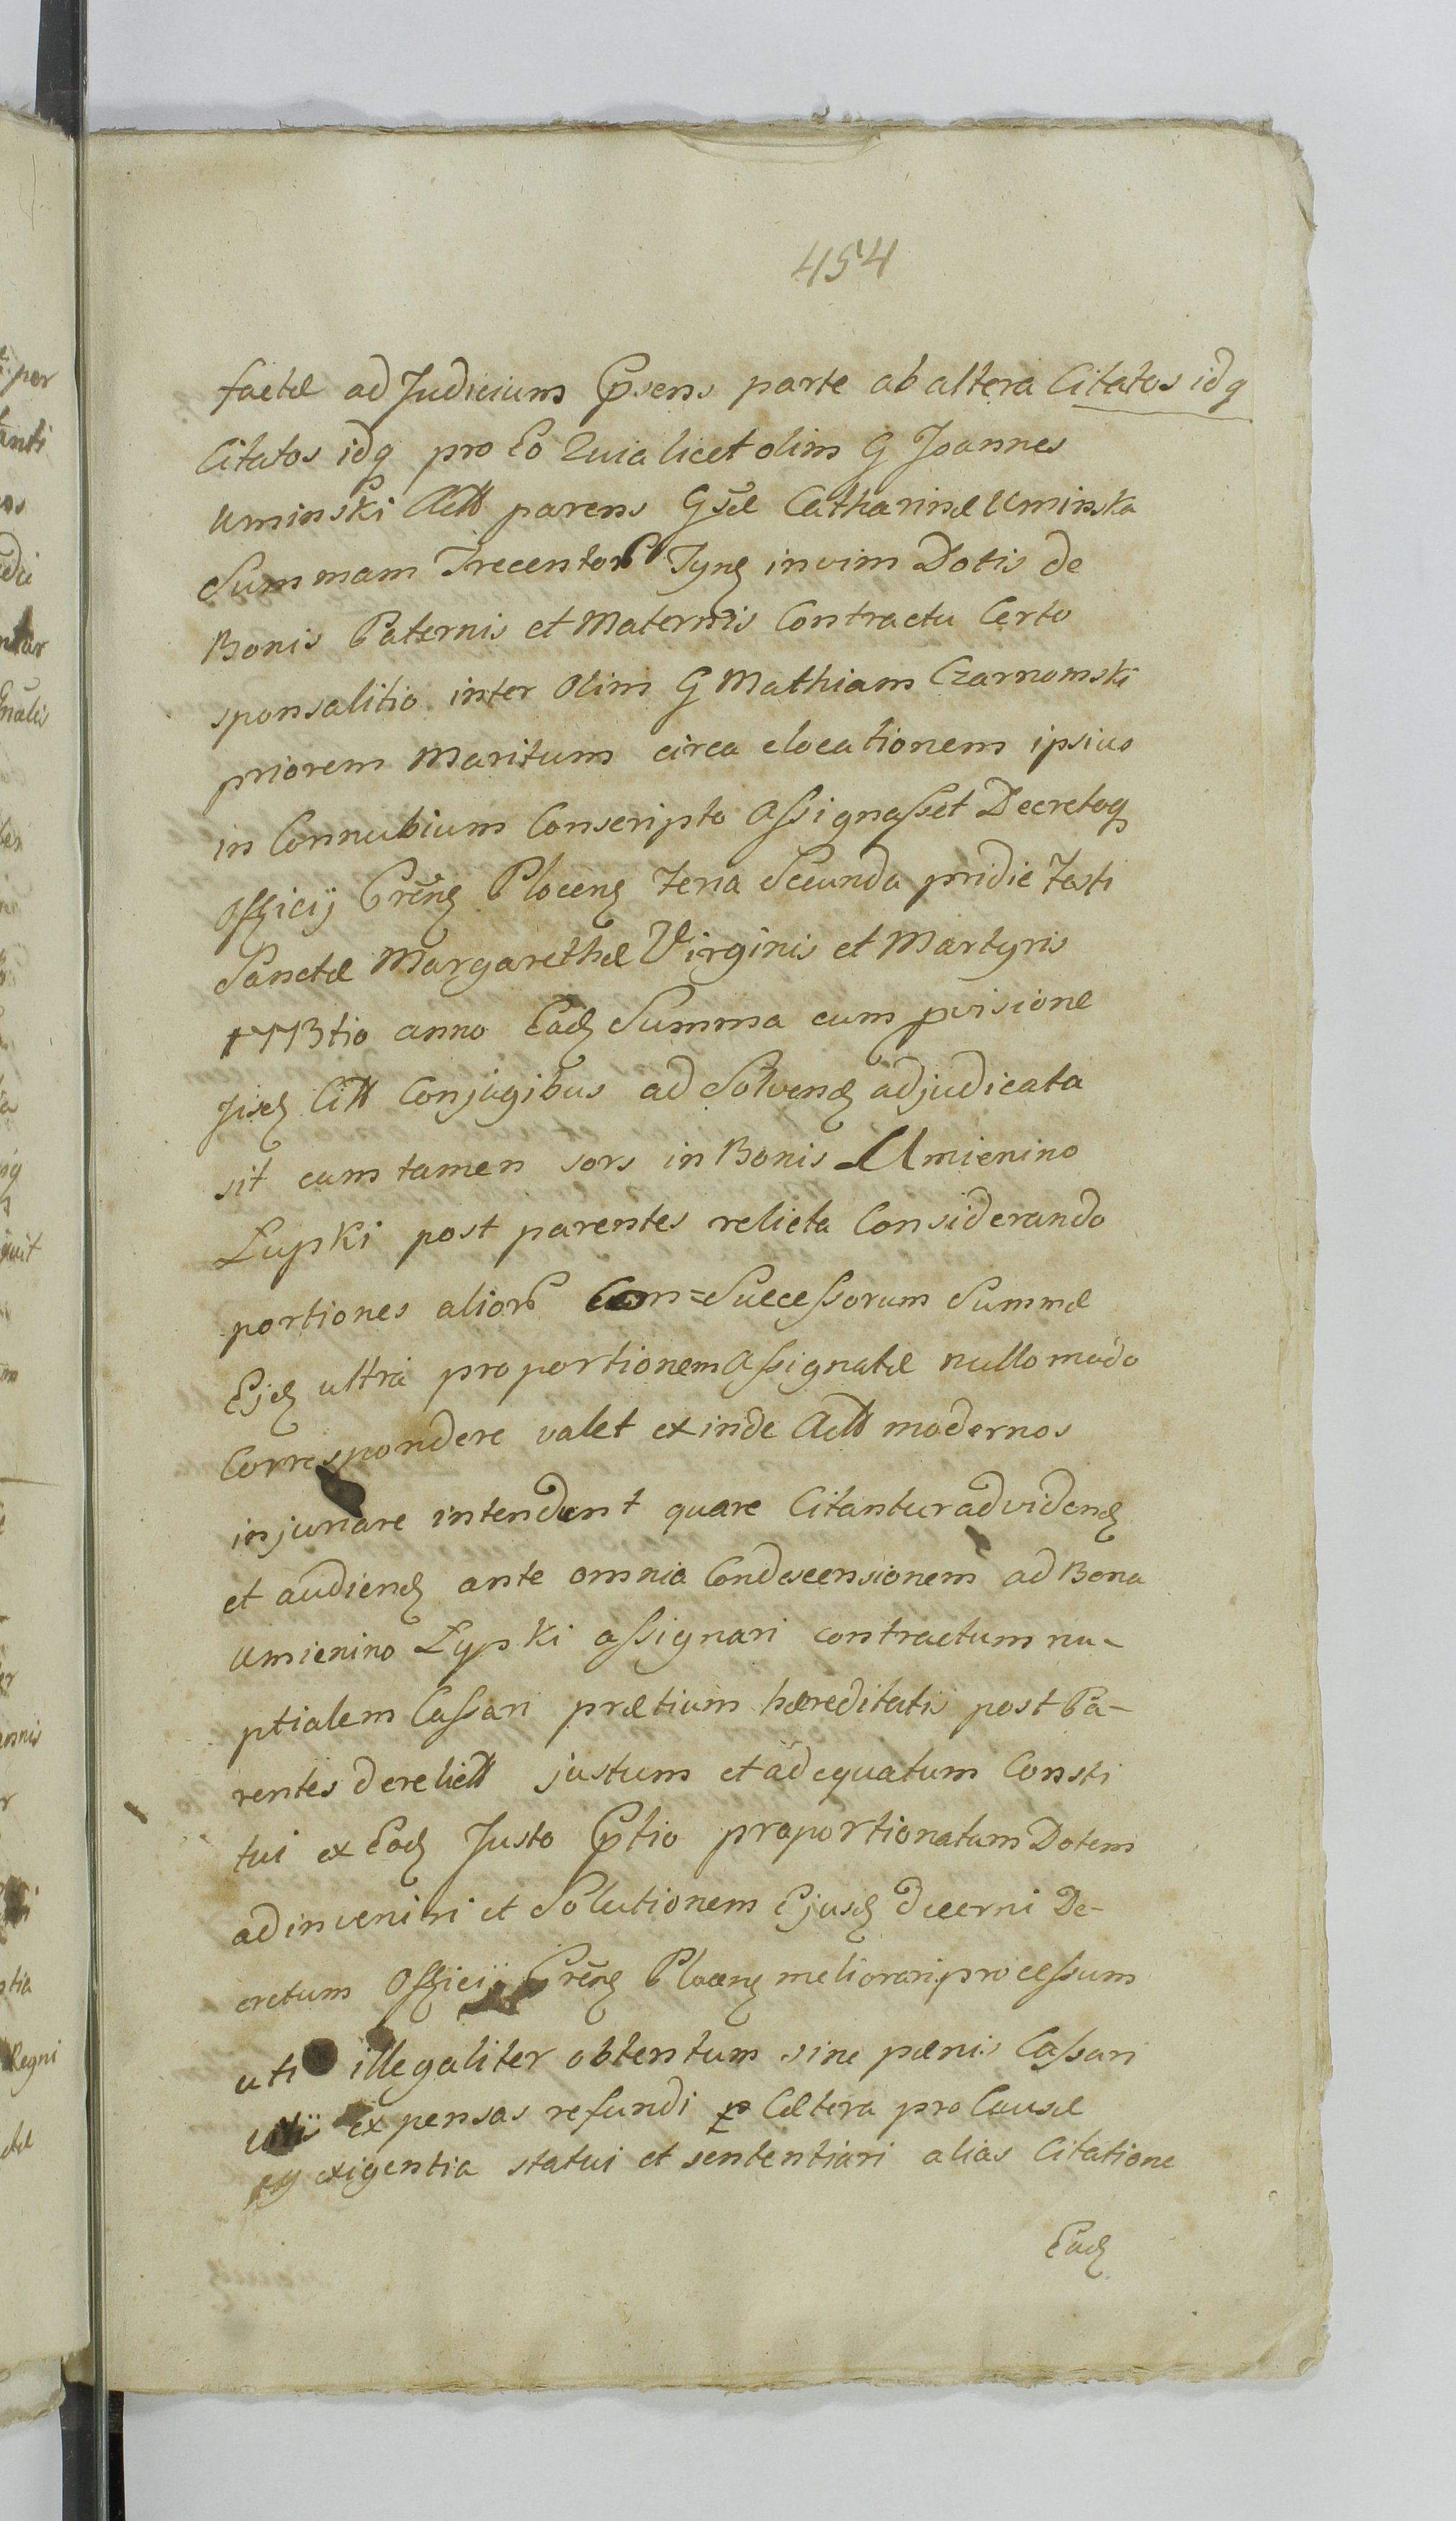 454
factæ ad Judicium Ppsens parte ab altera Citatos idq
Citatos idq pro Eo Quia licet olim G Joannes
Uminski Actt parens Gsæ Catharinæ Uminska
Summam Trecentor Tynf in vim Dotis de
Bonis Paternis et Maternis Contractu Certo
sponsalitio inter Olim G Mathiam Czarnomski
priorem Maritum circa elocationem ipsius
in Connubium Conscripto Assignasset Decretoq
Officij Crēn Plocen feria Secunda pridie Festi
Sanctæ Margarethæ Virginis et Martyris
1773tio anno Ead Summa cum pvisione
Jisd Citt Conjugibus ad Solvend adjudicata
sit cum tamen sors in Bonis Umienino
Łupki post parentes relicta Considerando
portiones alior Com=Successorum Summæ
Ejd ultra proportionem Assignatæ nullo modo
Correspondere valet exinde Actt modernos
injuriare intendunt quare Citantur ad vidend
et audiend ante omnia Condescensionem ad Bona
Umienino Łypki assignari contractum nu-
ptialem Cassari prætium hæreditatis post Pa-
rentes derelictt justum et adequatum Consti
tui ex Eod Justo Pptio proportionatam Dotem
adinveniri et Solutionem Ejusd decerni De-
cretum Officij Crēn Plocen meliorari processum
uti illegaliter obtentum sine pænis Cassari
expensas refundi p Cætera pro Causæ
exigentia statui et sententiari alias Citatione
Ead